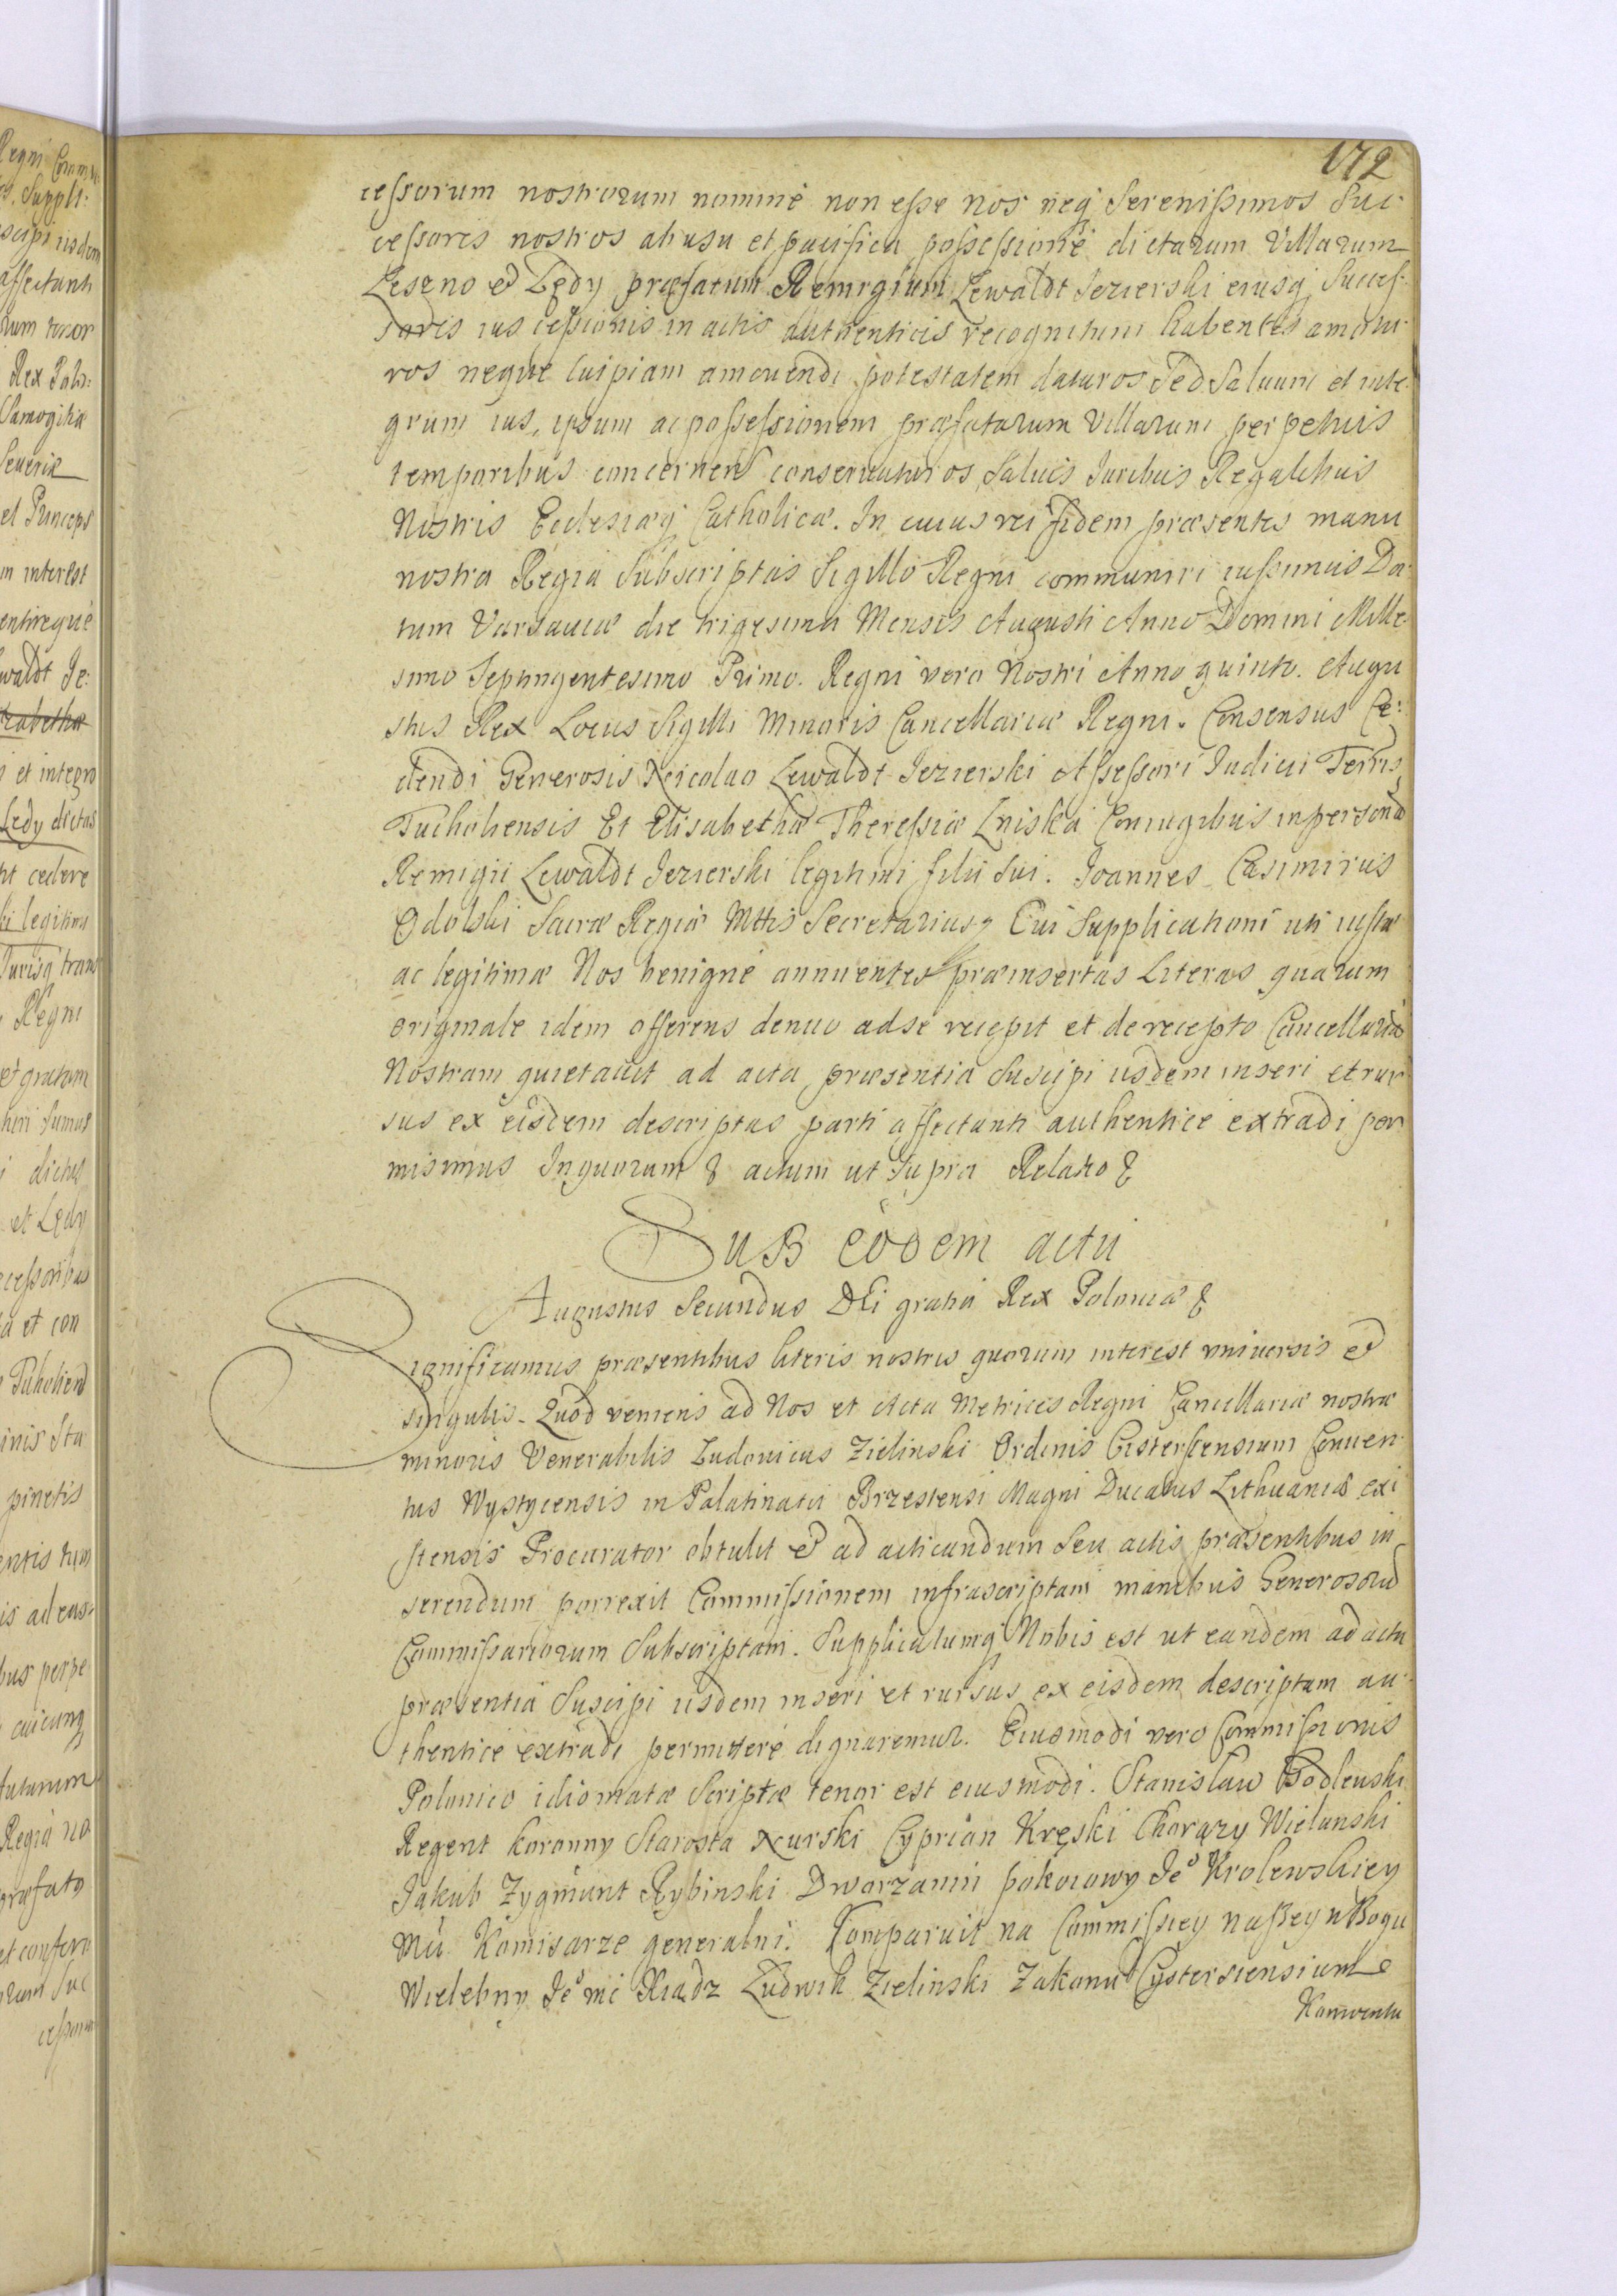 172
cessorum nostrorum nomine non esse Nos neq Serenissimos Suc-
cessores nostros ab usu et pacifica possessione dictarum Villarum
Leseno et Lędy præfatum Remigium Lewaldt Jezierski eiusq Succes-
sores ius cessionis in actis authenticis recognitum habentes amotu-
ros neque cuipiam amovendi potestatem daturos Sed Salvum et inte-
grum ius, ipsum ac possessionem præfatarum Villarum perpetuis
temporibus concernens conservaturos Salvis Juribus Regalibus
Nostris Ecclesiæq Catholicæ. In cuius rei fidem præsentes manu
nostra Regia Subscriptas Sigillo Regni communiri iussimus Da-
tum Varsaviæ die trigesima Mensis Augusti Anno Domini Mille-
simo Septingentesimo Primo. Regni vero Nostri Anno quinto. Augu
stus Rex Locus Sigilli Minoris Cancellariæ Regni. Consensus Ce:
dendi Generosis Nicolao Lewaldt Jezierski Assessori Judicii Terris
Tucholiensis Et Elisabethæ Theressiæ Lniska Coniugibus in persona
Remigii Lewaldt Jezierski legitimi filii Sui. Joannes Casimirus
Odolski Sacræ Regiæ Mttis Secretarius, Cui Supplicationi uti iustæ
ac legitimæ Nos benigne annuentes præinsertas Literas quarum
originale idem offerens denuo ad se recepit et de recepto Cancellariã
Nostram quietavit ad acta præsentia Suscipi iisdem inseri et rur
sus ex eisdem descriptas parti affectanti authentice extradi per
misimus In quorum & actum ut Supra Relatio &
SUB eodem actu
Augustus Secundus DEi gratia Rex Poloniæ &
Significamus præsentibus literis nostris quorum interest universis et
singulis. Quod veniens ad Nos et Acta Metrices Regni Cancellariæ nostræ
minoris Venerabilis Ludovicus Zielinski Ordinis Cisterciensium Conven-
tus Wystycensis in Palatinatu Brzestensi Magni Ducatus Lithuaniæ exi
stensis Procurator obtulit et ad acticandum Seu actis præsentibus in
serendum porrexit Commissionem infrascriptam manibus Generosorũ
Commissariorum Subscriptam. Supplicatumq Nobis est ut eandem ad acta
præsentia Suscipi iisdem inseri et rursus ex eisdem descriptam au-
thentice extradi permittere dignaremur. Eiusmodi vero Commissionis
Polonico idiomatæ Scriptæ tenor est eiusmodi. Stanislaw Godlewski
Regent koronny Starosta Nurski Cyprian Kręski Chorązy Wielunski
Jakub Zygmunt Rybinski Dworzanin pokoiowy Jeo Krolewskiey
Mci Komisarze generalni. Comparuit na Commissiey naszey w Bogu
Wielebny Jeo mc Xiądz Ludwik Zielinski Zakonu Cystersiensium
Konwentu